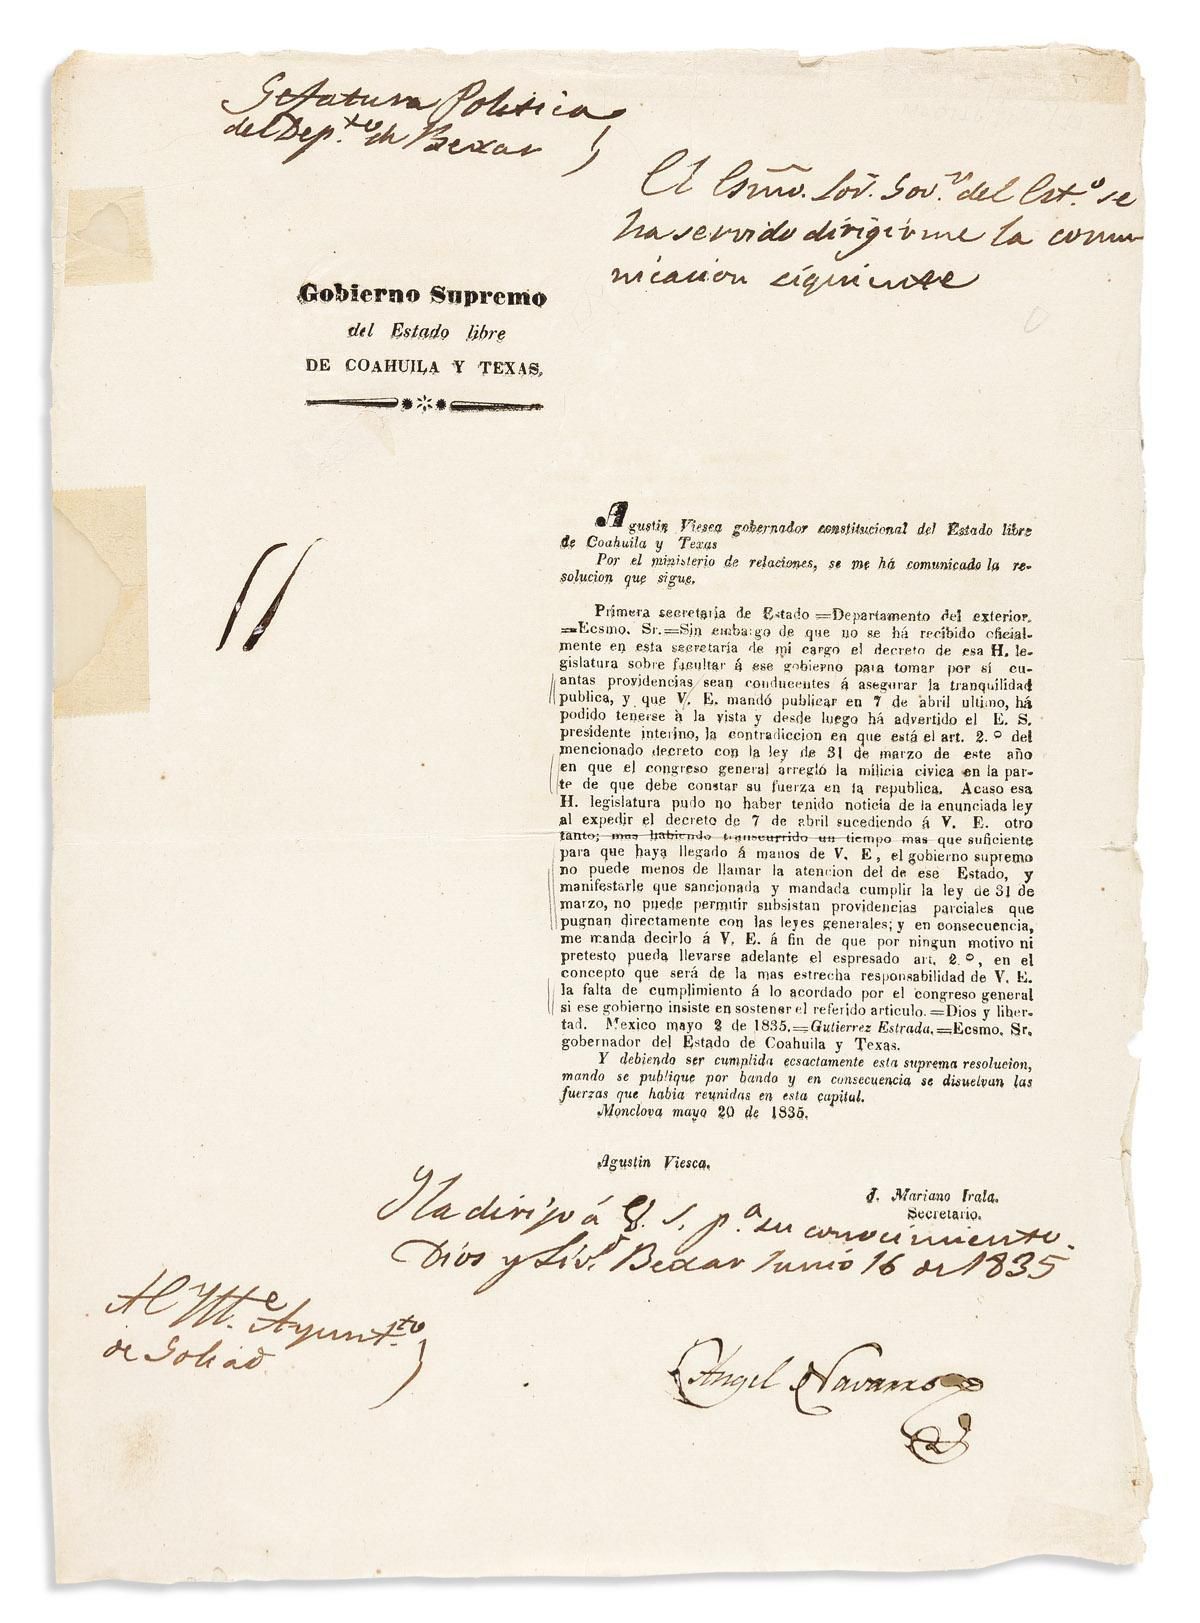 Gefatura Politica
del Dep.to de Bexar
El Esmõ. Sor. Gov.r del Est.o se
ha servido dirigirme la comu-
nicacion siguiente
Gobierno Supremo
del Estado libre
DE COAHUILA Y TEXAS.
Agustin Viesca gobernador constitucional del Estado libre
de Coahuila y Texas
Por el ministerio de relaciones, se me há comunicado la re-
solucion que sigue.
Primera secretaria de Estado =Departamento del exterior.
=Ecsmo. Sr.=Sin embargo de que no se há recibido oficial-
mente en esta secretaría de mi cargo el decreto de esa H. le-
gislatura sobre facultar á ese gobierno para tomar por sí cu-
antas providencias sean conducentes á asegurar la tranquilidad
publica, y que V. E. mandó publicar en 7 de abril ultimo, há
podido tenerse à la vista y desde luego há advertido el E. S.
presidente interino, la contradiccion en que está el art. 2.º del
mencionado decreto con la ley de 31 de marzo de este año
en que el congreso general arregló la milicia civica en la par-
te de que debe constar su fuerza en la republica. Acaso esa
H. legislatura pudo no haber tenido noticia de la enunciada ley
al expedir el decreto de 7 de abril sucediendo á V. E. otro
tanto; mas habiendo transcurrido un tiempo mas que suficiente
para que haya llegado á manos de V. E, el gobierno supremo
no puede menos de llamar la atencion del de ese Estado, y
manifestarle que sancionada y mandada cumplir la ley de 31 de
marzo, no puede permitir subsistan providencias parciales que
pugnan directamente con las leyes generales; y en consecuencia,
me manda decirlo á V. E. á fin de que por ningun motivo ni
pretesto pueda llevarse adelante el espresado art. 2.º, en el
concepto que será de la mas estrecha responsabilidad de V. E.
la falta de cumplimiento á lo acordado por el congreso general
si ese gobierno insiste en sostener el referido articulo.=Dios y liber-
tad. Mexico mayo 2 de 1835.=Gutierrez Estrada.=Ecsmo. Sr.
gobernador del Estado de Coahuila y Texas.
Y debiendo ser cumplida ecsactamente esta suprema resolucion,
mando se publique por bando y en consecuencia se disuelvan las
fuerzas que habia reunidas en esta capital.
Monclova mayo 20 de 1835.
Agustin Viesca.
J. Mariano Irala.
Secretario.
Y la dirijo á V. S. p.a su conocimiento.
Dios y Lib.d Bexar Junio 16 de 1835
Al Ytt.e Ayunt.to
de Goliad
Angel Navarro